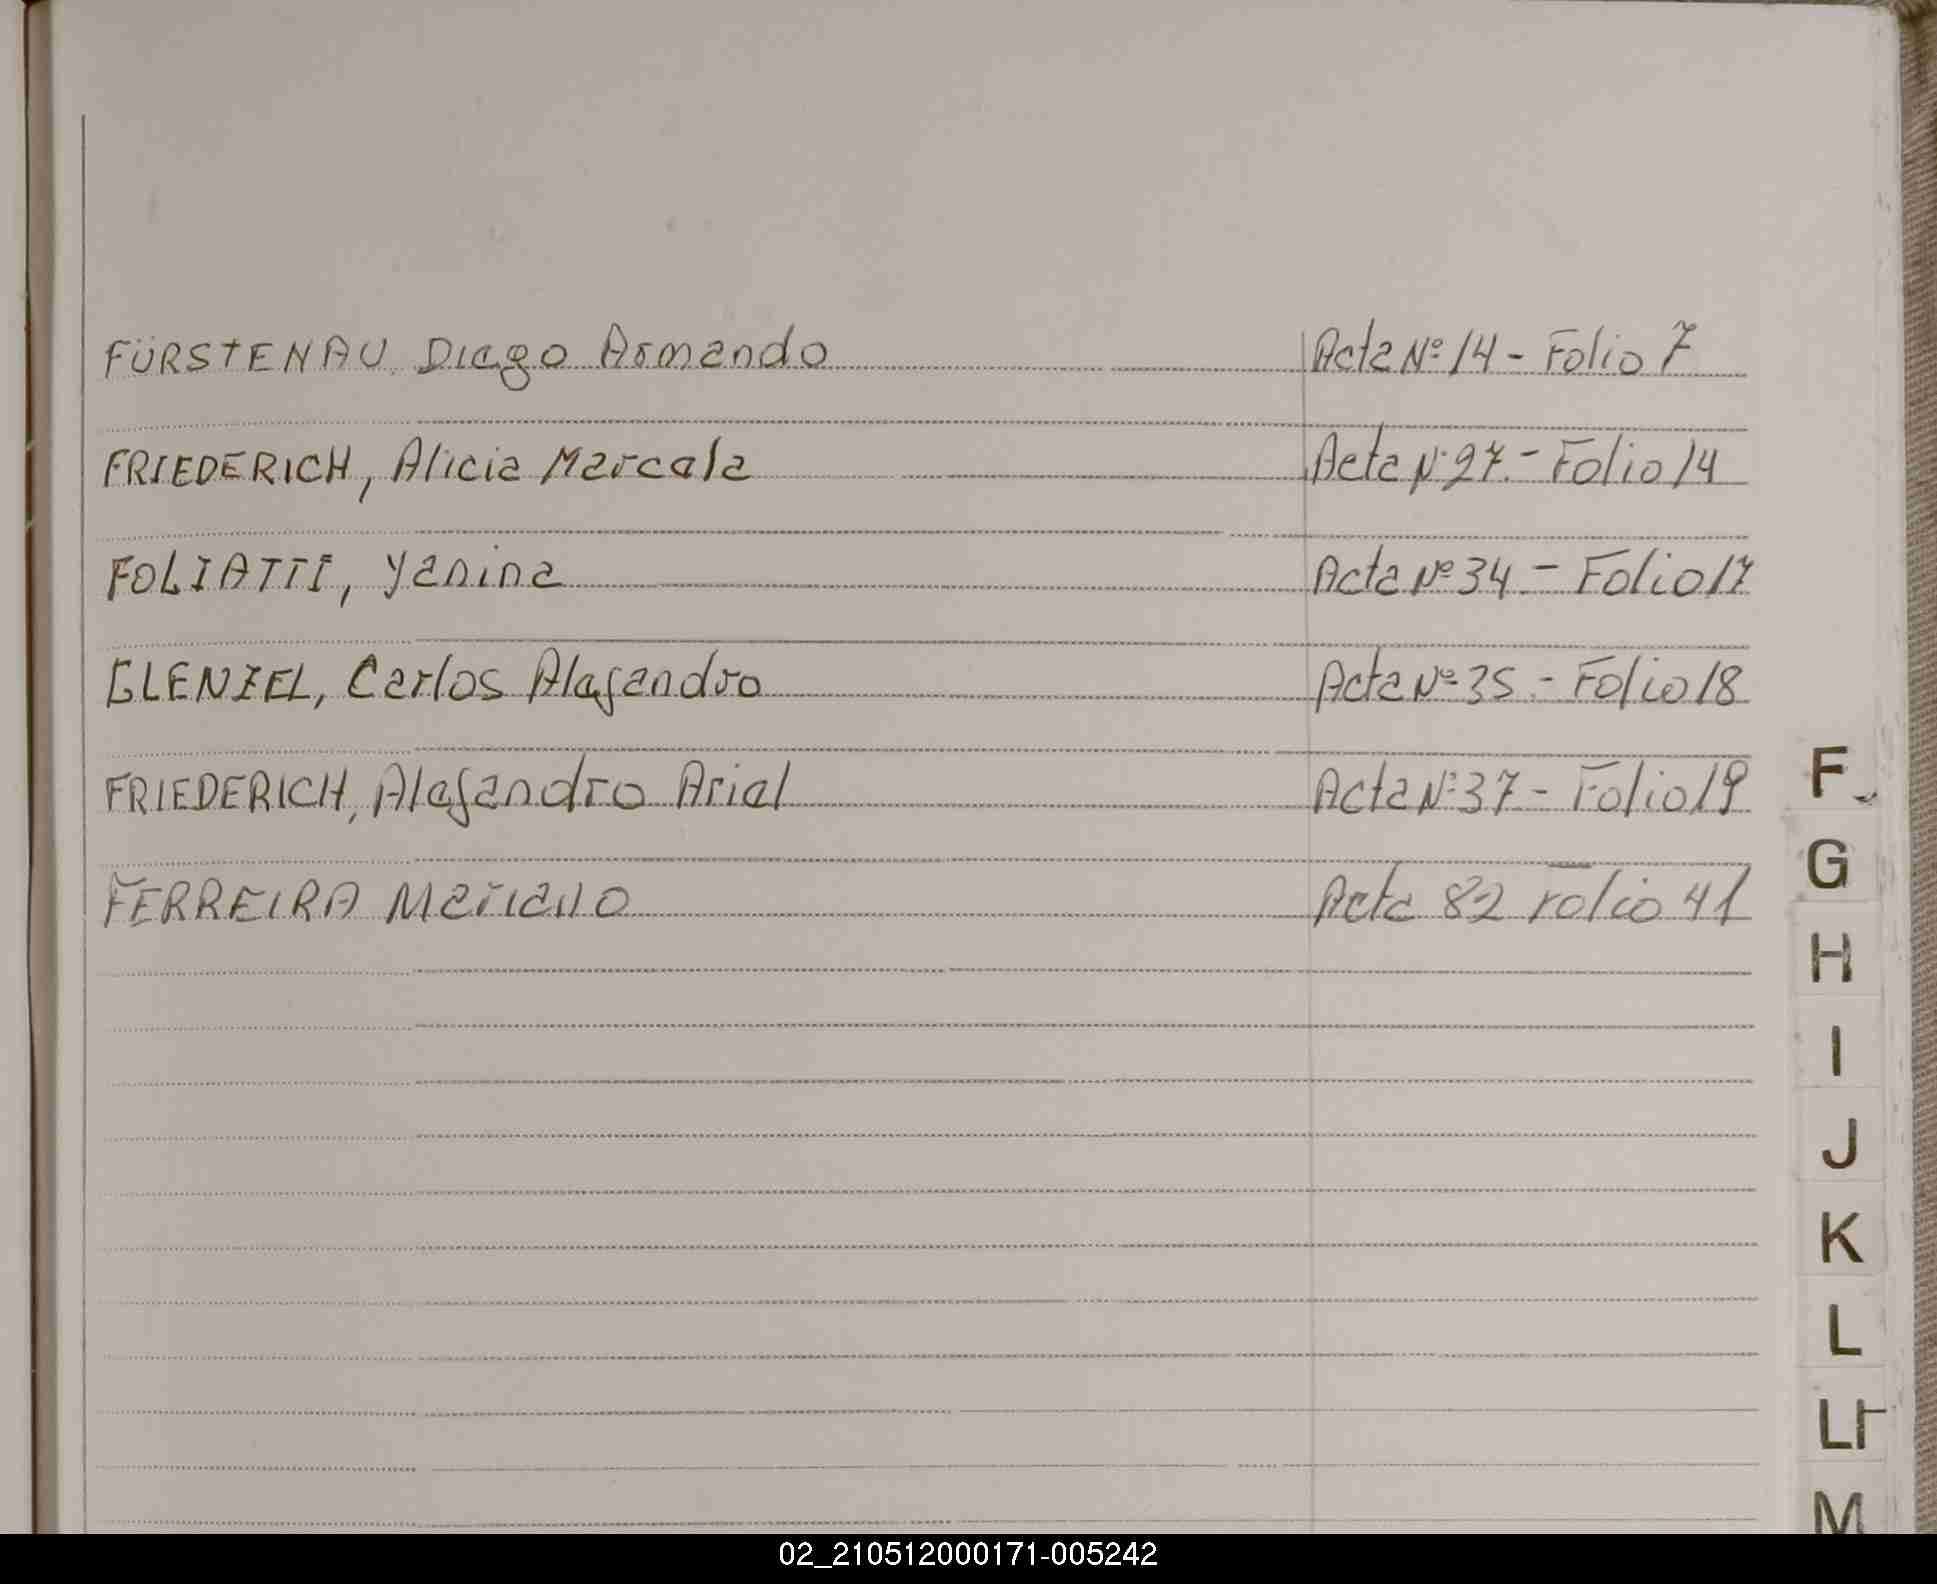 FÜRSTENAU, Diego Armando Acta Nº 14 - Folio 7
FRIEDERICH, Alicia Marcela Acta Nº 27 - Folio 14
FOLIATTI, Yanina Acta Nº 34 - Folio 17
GLENZEL, Carlos Alejandro Acta Nº 35 - Folio 18
FRIEDERICH, Alejandro Ariel Acta Nº 37 - Folio 19
FERREIRA Mariano Acta 82 Folio 41
F
G
H
I
J
K
L
Ll
M
02_210512000171-005242